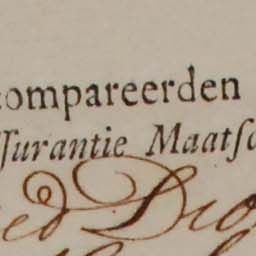 compareerden
ſſurantie Maatſc
ed Dio